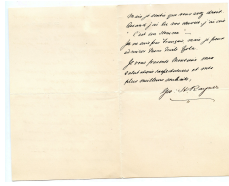 Mais je sais que vous avez droit
quand j'ai lu vos œuvres j'ai dit
"C'est un Homme" –
Je ne suis pas Français mais je puis
admirer Emile Zola.
Je vous présente Monsieur mes
salutations respectueuses et mes
plus meilleurs souhaits.
Geo. H.